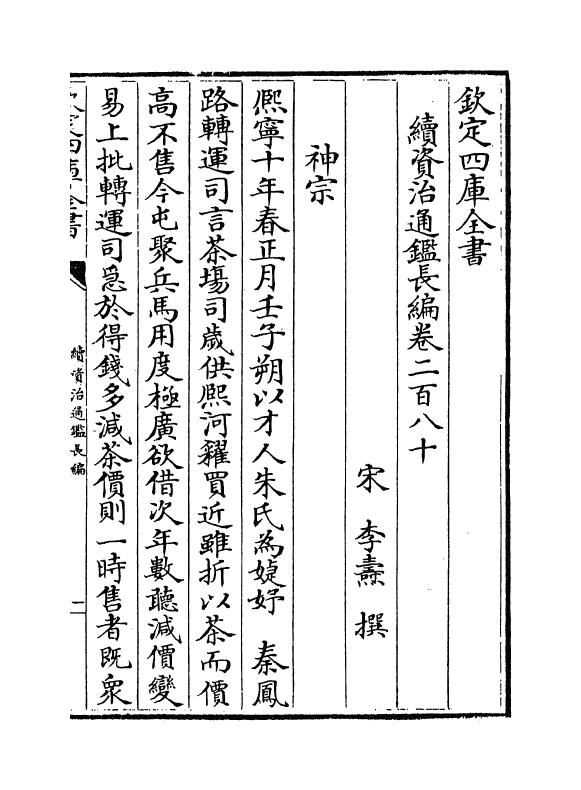 欽定四庫全書
續資治通鑑長編卷二百八十
宋 李燾 撰
神宗
熈寧十年春正月壬子朔以才人朱氏為婕妤 秦鳳
路轉運司言茶塲司歲供熙河糴買近雖折以茶而價
高不售今屯聚兵馬用度極廣欲借次年數聽減價變
易上批轉運司急於得錢多減茶價則一時售者既衆
續資治通鑑長編